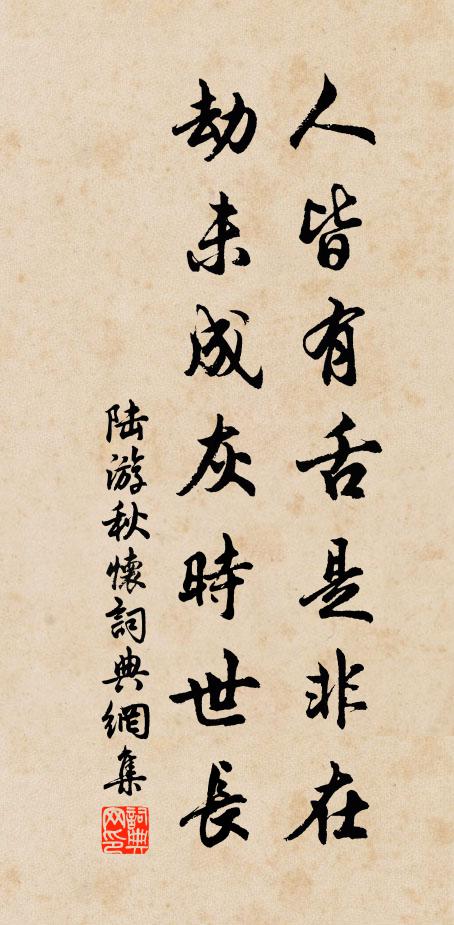 人皆有舌是非在
劫未成灰時世長
陸游秋懷詞典網集
詞典
网印